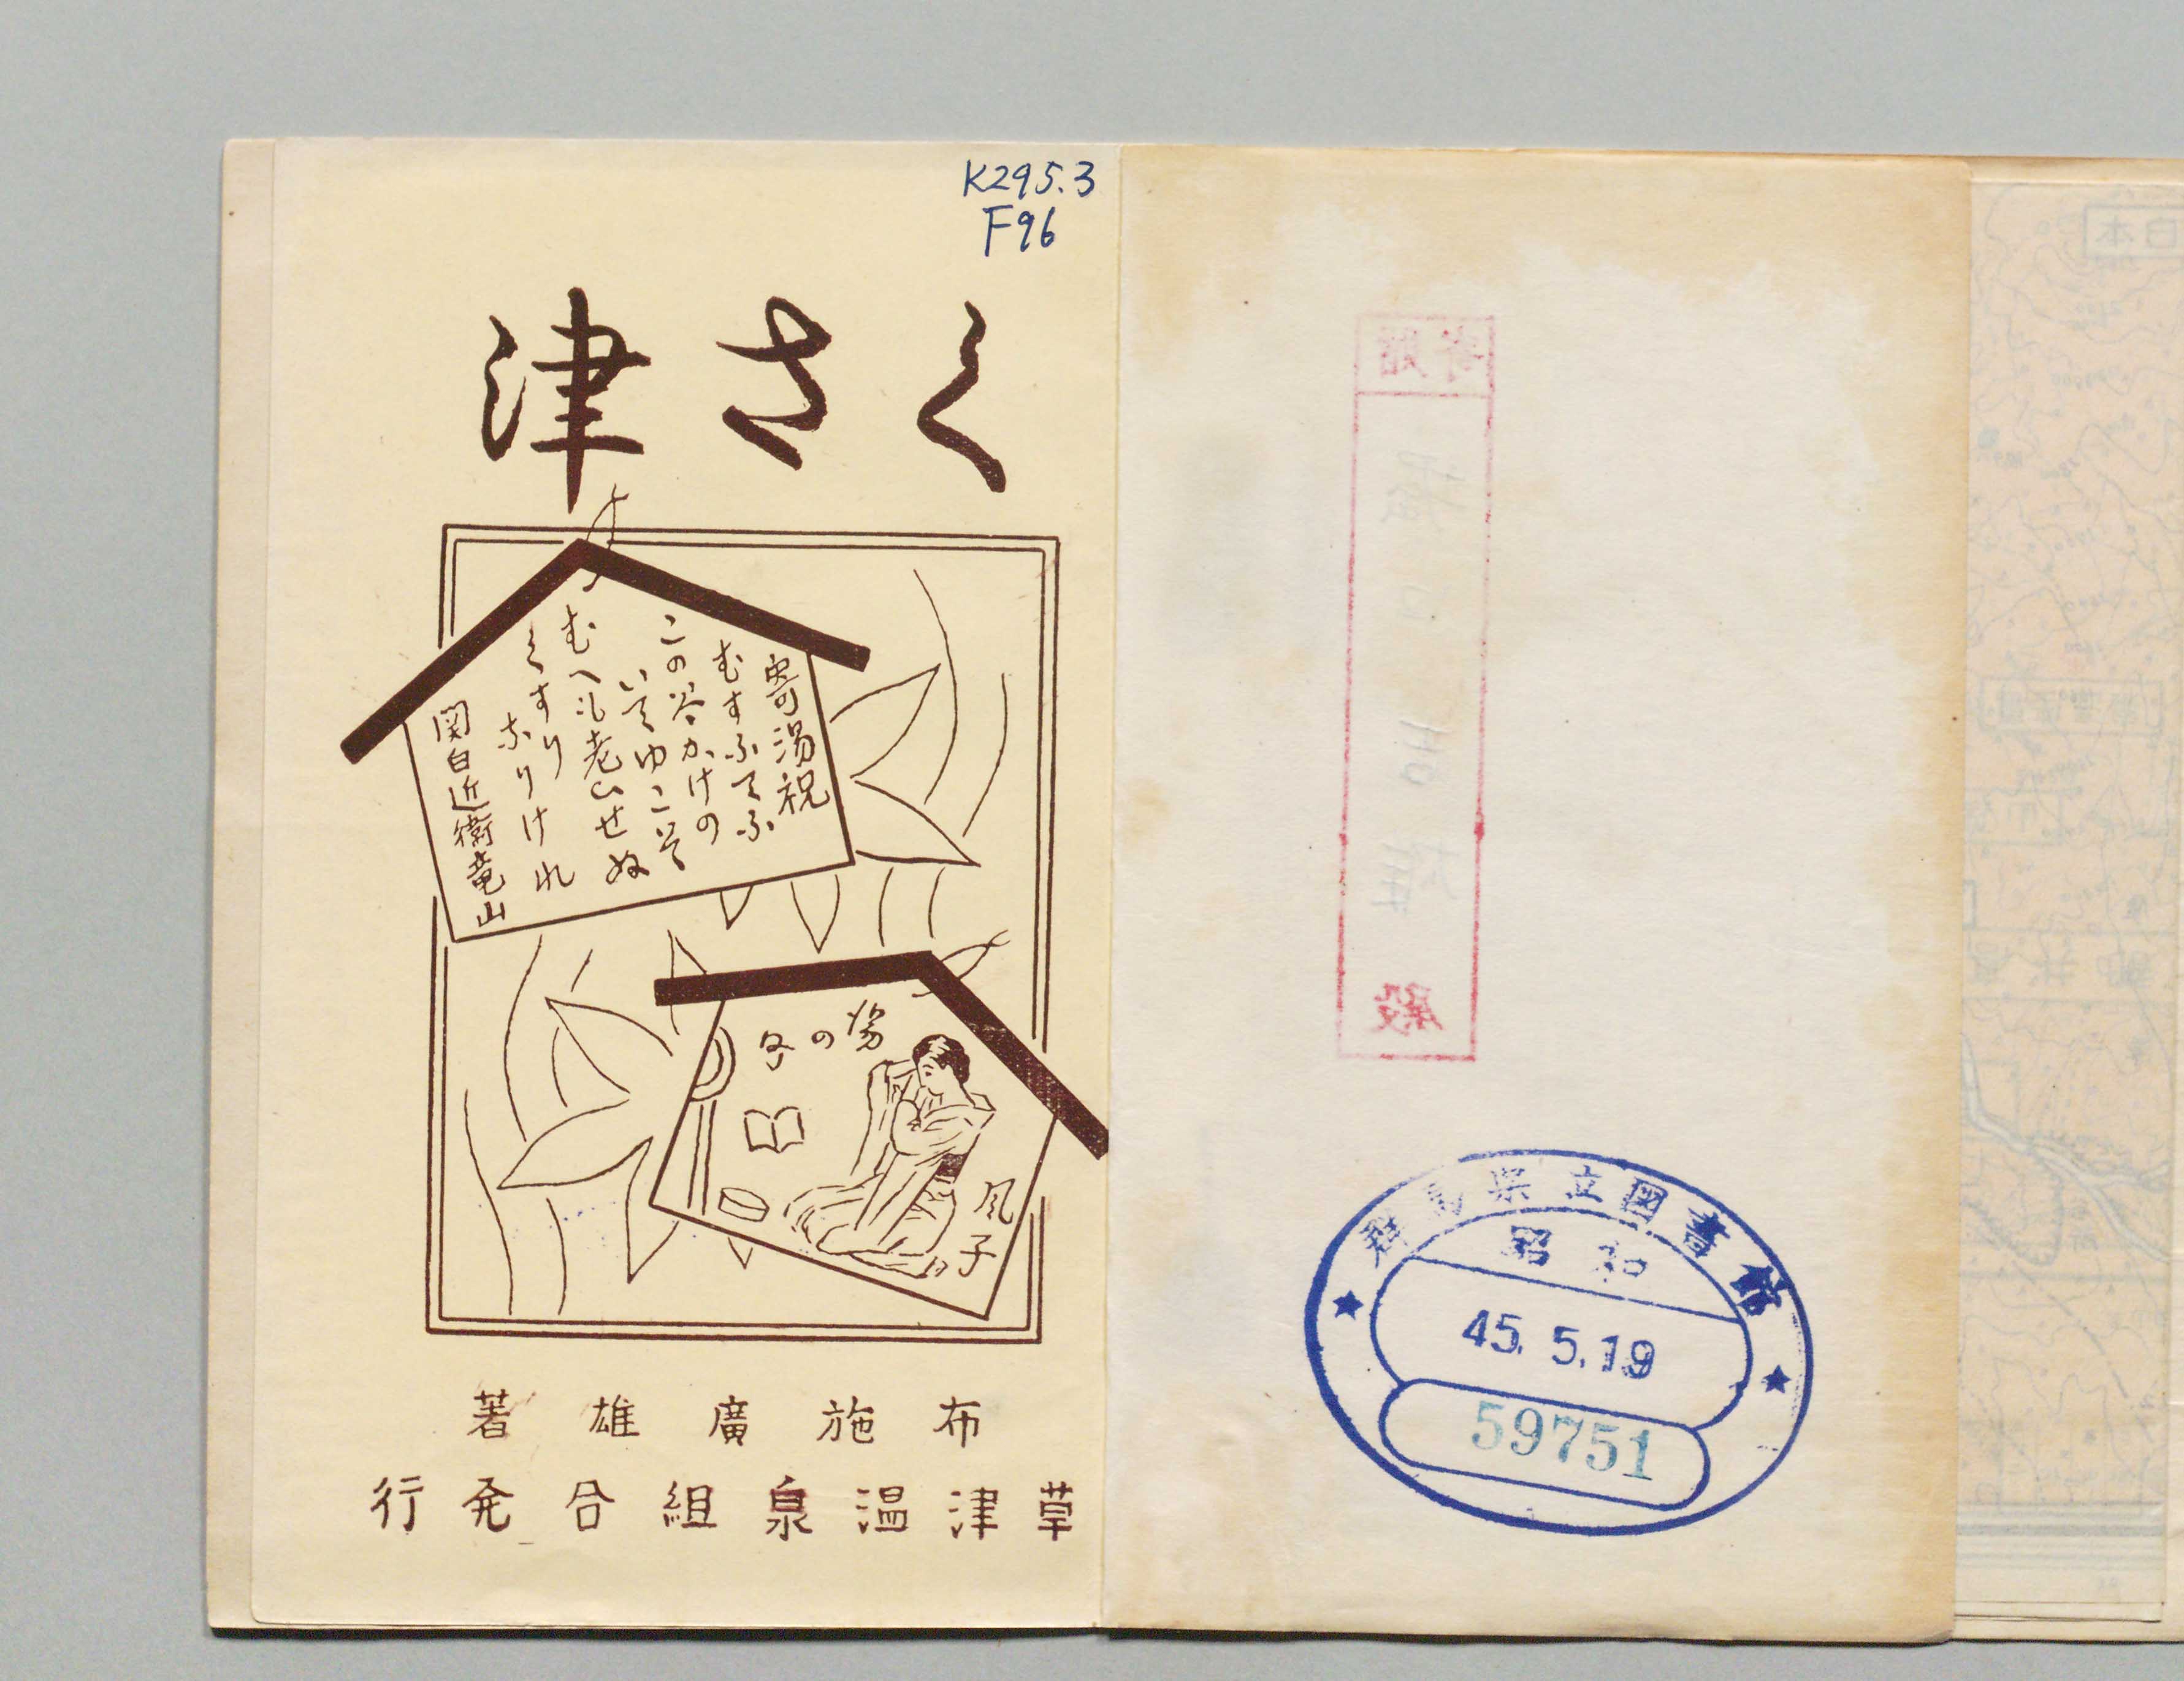 K295.3
F96
くさ津
寄湯祝
むすふてふ
この谷かけの
いてゆこそ
むへも老せぬ
くすり
なりけれ
関白近衛竜山
湯の子
風子
布施廣雄著
草津温泉組合発行
寄贈
殿
群馬県立図書館
昭和
45. 5. 19
59751
日本